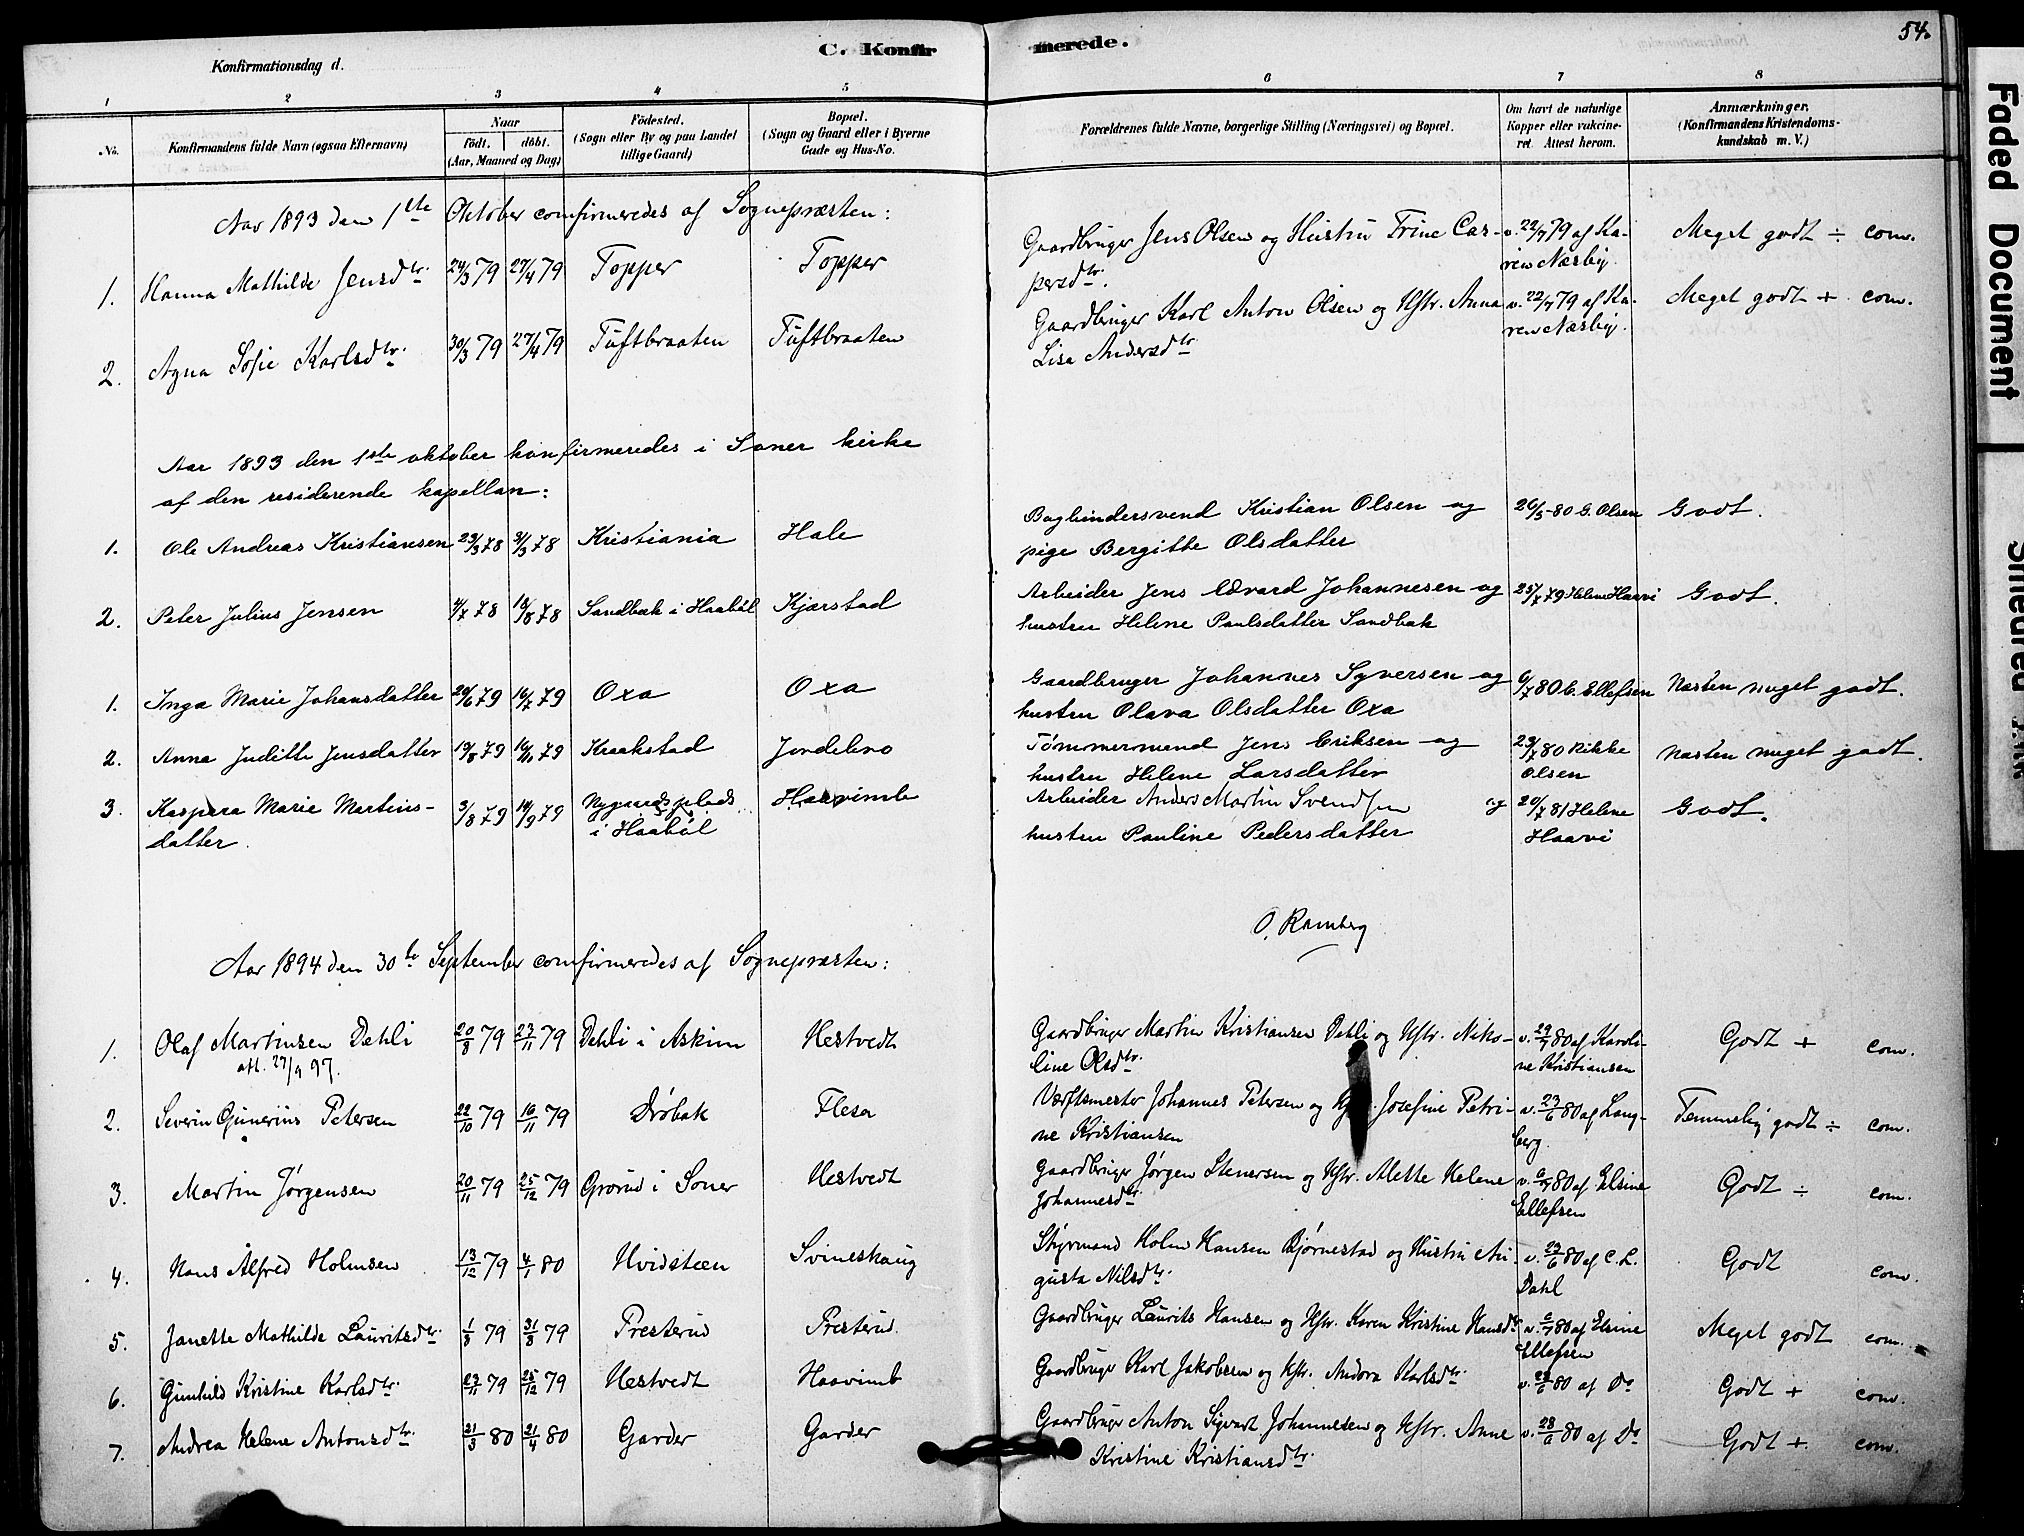 C. Konfirmerede.
54.
Konfirmationsdag d.
1 2 3 4 5 6 7 8
No. Konfirmandens fulde Navn (ogsaa Efternavn) Naar födt. döbt. (Aar, Maaned og Dag) Födested. (Sogn eller By og paa Landet tillige Gaard) Bopæl. (Sogn og Gaard eller i Byerne Gade og Hus-No. Forældrenes fulde Navne, borgerlige Stilling (Næringsvei) og Bopæl. Om havt de naturlige Kopper eller vakcineret. Attest herom. Anmærkninger. (Konfirmandens Kristendomskundskab m. V.)
Aar 1893 den 1ste Oktober comfirmeredes af Sognepræsten:
1. Hanna Mathilde Jensdtr. 24/3 79 27/4 79 Topper Topper Gaardbruger Jens Olsen og Hustru Trine Cas- v. 22/7 79 af Ka- Meget godt ÷ com.
persdtr. ren Næsby.
2. Agna Sofie Karlsdtr. 30/3 79 27/4 79 Tuftbraaten Tuftbraaten Gaardbruger Karl Anton Olsen og Hstr. Anna v. 22/7 79 af Ka- Meget godt + com.
Lisa Andersdtr. ren Næsby.
Aar 1893 den 1ste oktober konfirmeredes i Soner kirke
af den residerende kapellan:
1. Ole Andreas Kristiansen 23/3 78 31/3 78 Kristiania Hale Bogbindersvend Kristian Olsen og 26/5-80 G. Olsen Godt.
pige Bergitte Olsdatter
2. Peter Julius Jensen 4/7 78 18/8 78 Sandbæk i Haabøl Kjærstad Arbeider Jens Edvard Johannesen og 25/7 79 Helene Haavi Godt.
hustru Helene Paulsdatter Sandbæk
1. Inga Marie Johansdatter 20/6 79 16/7 79 Oxa Oxa Gaardbruger Johannes Syversen og 6/7 80 E. Ellefsen Næsten meget godt.
hustru Olava Olsdatter Oxa
2. Anna Juditte Jensdatter 19/8 79 16/11 79 Kraakstad Jordebro Tømmermend Jens Eriksen og 29/7 80 Rikke Næsten meget godt.
hustru Helene Larsdatter Olsen
3. Kaspara Marie Martins- 3/8 79 14/9 79 Nygaardsplads Haavimb Arbeider Anders Martin Svendsen og 20/7 81 Helene Godt.
datter. i Haabøl hustru Pauline Pedersdatter Haavi
O. Ramberg
Aar 1894 den 30te September comfirmeredes af Sognepræsten:
1. Olaf Martinsen Dehli 20/8 79 23/11 79 Dehli i Askim Hestvedt Gaardbruger Martin Kristiansen Dehli og Hstr. Niko- v. 29/7 80 af Karoli- Godt + com.
att. 27/9 97. line Olsdtr. ne Kristiansen
2. Severin Gunerius Petersen 22/10 79 16/11 79 Drøbak Flesa Værftsmester Johannes Petersen og Hstr. Josefine Petri- v. 23/6 80 af Lang- Temmelig godt ÷ com.
ne Kristiansen berg.
3. Martin Jørgensen 20/11 79 25/12 79 Grorud i Soner Hestvedt Gaardbruger Jørgen Stenersen og Hstr. Alette Helene v. 6/7 80 af Elsine Godt ÷ com.
Johannesdtr. Ellefsen
4. Hans Alfred Holmsen 13/12 79 4/1 80 Hvidsteen Svineskaug Styrmand Holm Hansen Bjørnestad og Hustru Au- v. 23/6 80 af C. L. Godt com.
gusta Nilsdtr. Dahl
5. Janette Mathilde Lauritsdtr. 1/3 79 31/8 79 Presterud Presterud. Gaardbruger Laurits Hansen og Hstr. Karen Kristine Hansdtr. v. 6/7 80 af Elsine Meget godt com.
Ellefsen
6. Gunhild Kristine Karlsdtr. 23/11 79 25/12 79 Hestvedt Haavimb Gaardbruger Karl Jakobsen og Hstr. Andora Karlsdtr. v. 28/6 80 af Do Godt + com.
7. Andrea Helene Antonsdtr. 21/3 80 21/4 80 Garder Garder Gaardbruger Anton Sigvart Johannesen og Hstr. Anne v. 28/6 80 af Do Godt + com.
Kristine Kristiansdtr.
Faded Document